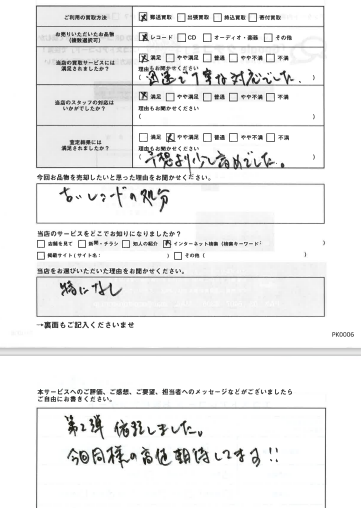 ご利用の買取方法 ☒郵送買取 □出張買取 □持込買取 □寄付買取
お売りいただいたお品物（複数選択可） ☒レコード □CD □オーディオ・楽器 □その他
当店の買取サービスには満足されましたか？ ☒満足 □やや満足 □普通 □やや不満 □不満
理由もお聞かせください
（迅速で丁寧な対応でした。）
当店のスタッフの対応はいかがでしたか？ ☒満足 □やや満足 □普通 □やや不満 □不満
理由もお聞かせください
（ ）
査定結果には満足されましたか？ □満足 ☒やや満足 □普通 □やや不満 □不満
理由もお聞かせください
（予想より少し高めでした。）
今回お品物を売却したいと思った理由をお聞かせください。
古いレコードの処分
当店のサービスをどこでお知りになりましたか？
□店舗を見て □新聞・チラシ □知人の紹介 ☒インターネット検索（検索キーワード： ）
□掲載サイト（サイト名： ） □その他（ ）
当店をお選びいただいた理由をお聞かせください。
特になし
→裏面もご記入くださいませ
PK0006
本サービスへのご評価、ご感想、ご要望、担当者へのメッセージなどがございましたら
ご自由にお書きください。
第2弾 依頼しました。
今回同様の高値期待してます!!